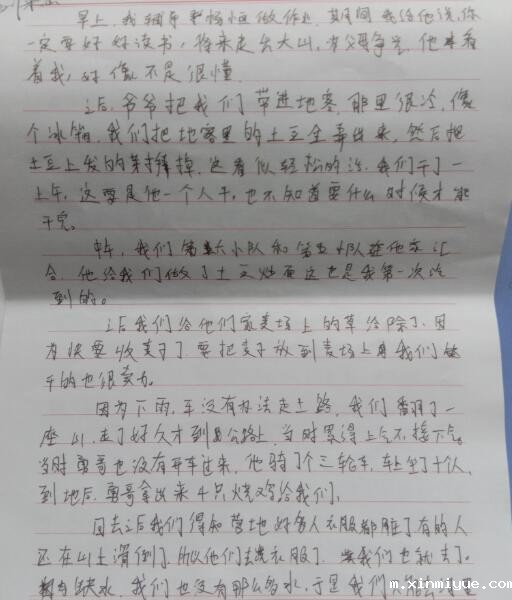 早上,我辅导 做作业,其间我给他说,你
一定要好好读书,将来走出大山,为父母争光,他 看
着我,好像不是很懂.
之后,爷爷把我们带进地窖,那里很冷,像
个冰箱,我们把地窖里的土豆全弄出来,然后把
土豆上发的芽掰掉,这看似轻松的活,我们干了一
上午,这要是他一个人干,也不知道要什么时候才能
干完。
中午,我们第六小队和第五小队在他家汇
合,他给我们做了土豆 面这也是我第一次吃
到的。
之后我们给他们家麦场上的草给除了,因
为快要收麦子了,要把麦子放到麦场上 我们
干的也很卖力。
因为下雨,车没有办法走土路,我们翻了一
座山,走了好久才到 公路上,当时累得上气不接下气。
当时勇哥也没有开车过来,他骑了个三轮车,车上坐了十人,
到地后,勇哥拿出来4只烧鸡给我们,
回去之后我们得知营地好多人衣服都脏了有的人
还在山上滑倒了,所以他们去洗衣服了, 我们也就去了。
缺水,我们也没有那么多水,于是我们只能
m.xinmiyue.com